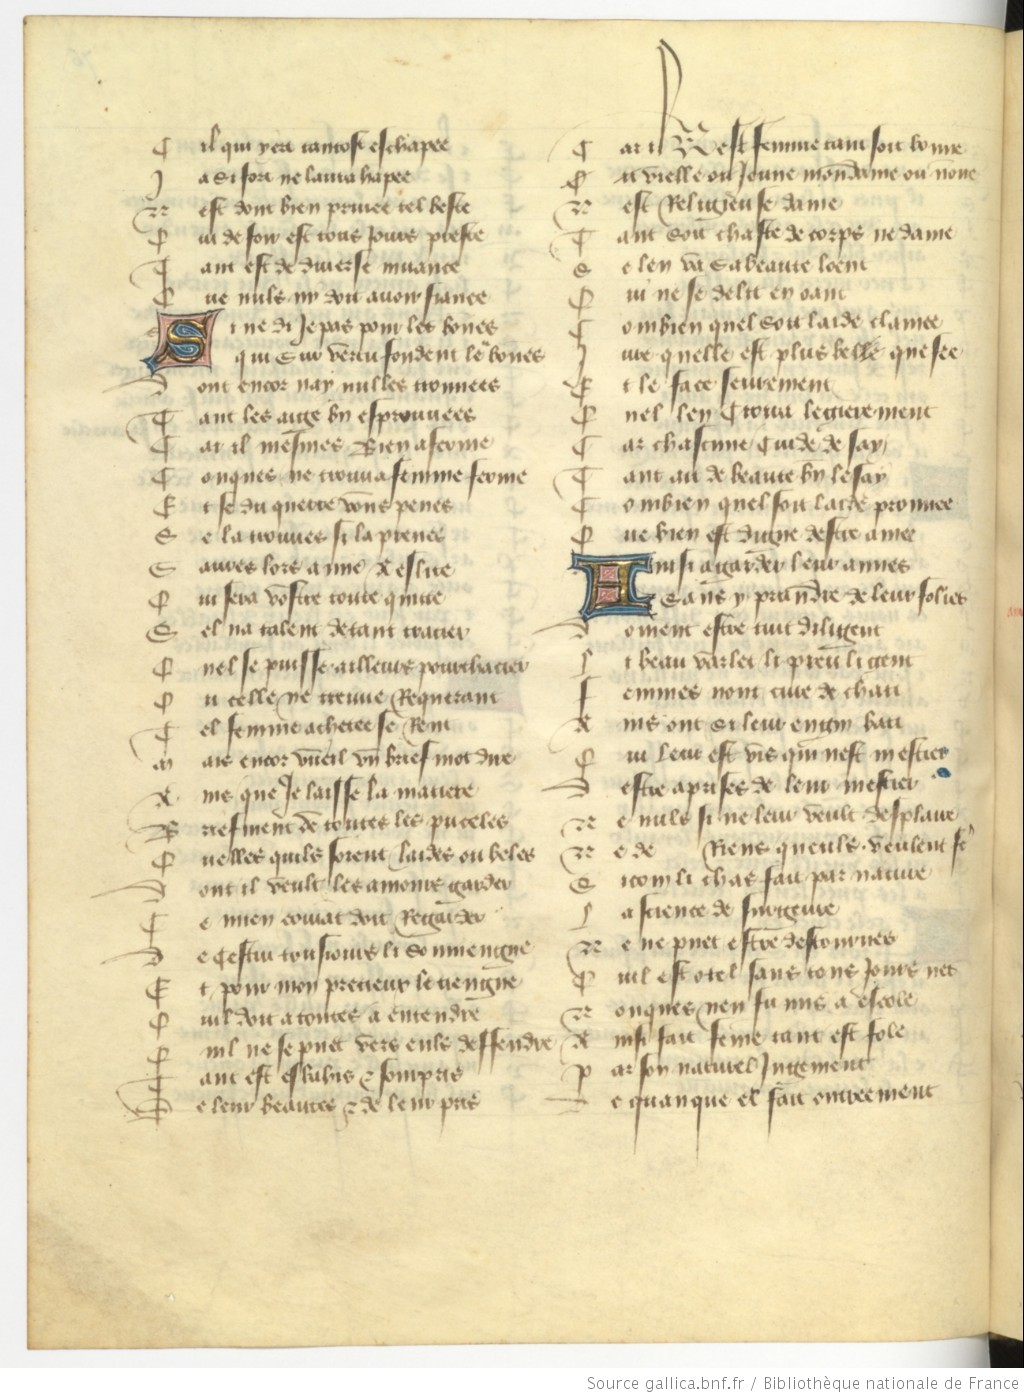 C il qui yert tantost eschapee
J a si fort ne laura hapee
N est dont bien privee tel beste
Q ui de foir est tous jours preste
T ant est de diverse muance
Q ue nuls ny doit avoir fiance
S i ne di je pas pour les bones
qui sur vertu fondent les bones
D ont encor nay nulles trouvees
T ant les aige bn esprouvees
C ar il mesmes bien aferme
C onques ne trouva femme ferme
E t se du querre vous penes
S e la trouves si la prenes
S aures lors amie a eslite
Q ui sera vostre toute quitte
S el na talent de tant tracier
Q nel se puisse ailleurs pourchacier
O u celle ne treuve requerant
T el femme a chetee se rent
M ais encor vueil un brief mot dire
A ins que je laisse la matire
B riefment de toutes les puceles
Q uelles quils soient laides ou beles
D ont il veult les amours garder
C e mien commant doit regarder
D e cestui tousiours li souviengne
E t pour moy precieux le tiengne
Q uil doit a toutes a entendre
Q uil ne se puet vers euls deffendre
T ant est esbahis & sourpris
D e leur beautes & de leur pris
C ar il nest femme tant soit bonne
O u vielle ou jeune mondaine ou none
N est religieuse dame
T ant soit chaste de corps ne dame
S e len va sa beaute loent
Q ui ne se delit en oant
C ombien quel soit laide clamee
J ure quelle est plus belle que fee
E t le face seurement
Q nel len croira legierement
C ar chascune cuide de say
T ant ait de beaute bn le say
C ombien quel soit laide prouvee
Q ue bien est digne destre amee
E insi a garder leur amies
Sans y prandre de leur folies
D oivent estre tuit diligent
L i beau varlet li preu li gent
F emmes nont cure de chasti
A ins ont si leur engin basti
Q ui leur est vis quil nest mestier
D estre aprises de leur mestier
N e nuls si ne leur veult desplaire
N e de riens queuls veulent f
S icom li chas fait par nature
L a science de surgeure
N e ne puet estre destournes
Q uil est o tel sans tous jours nes
N onques nen fu mis a escole
A insi fait feme tant est fole
P ar son naturel jugement
D e quanque el fait oultreement
Source gallica.bnf.fr / Bibliothèque nationale de France